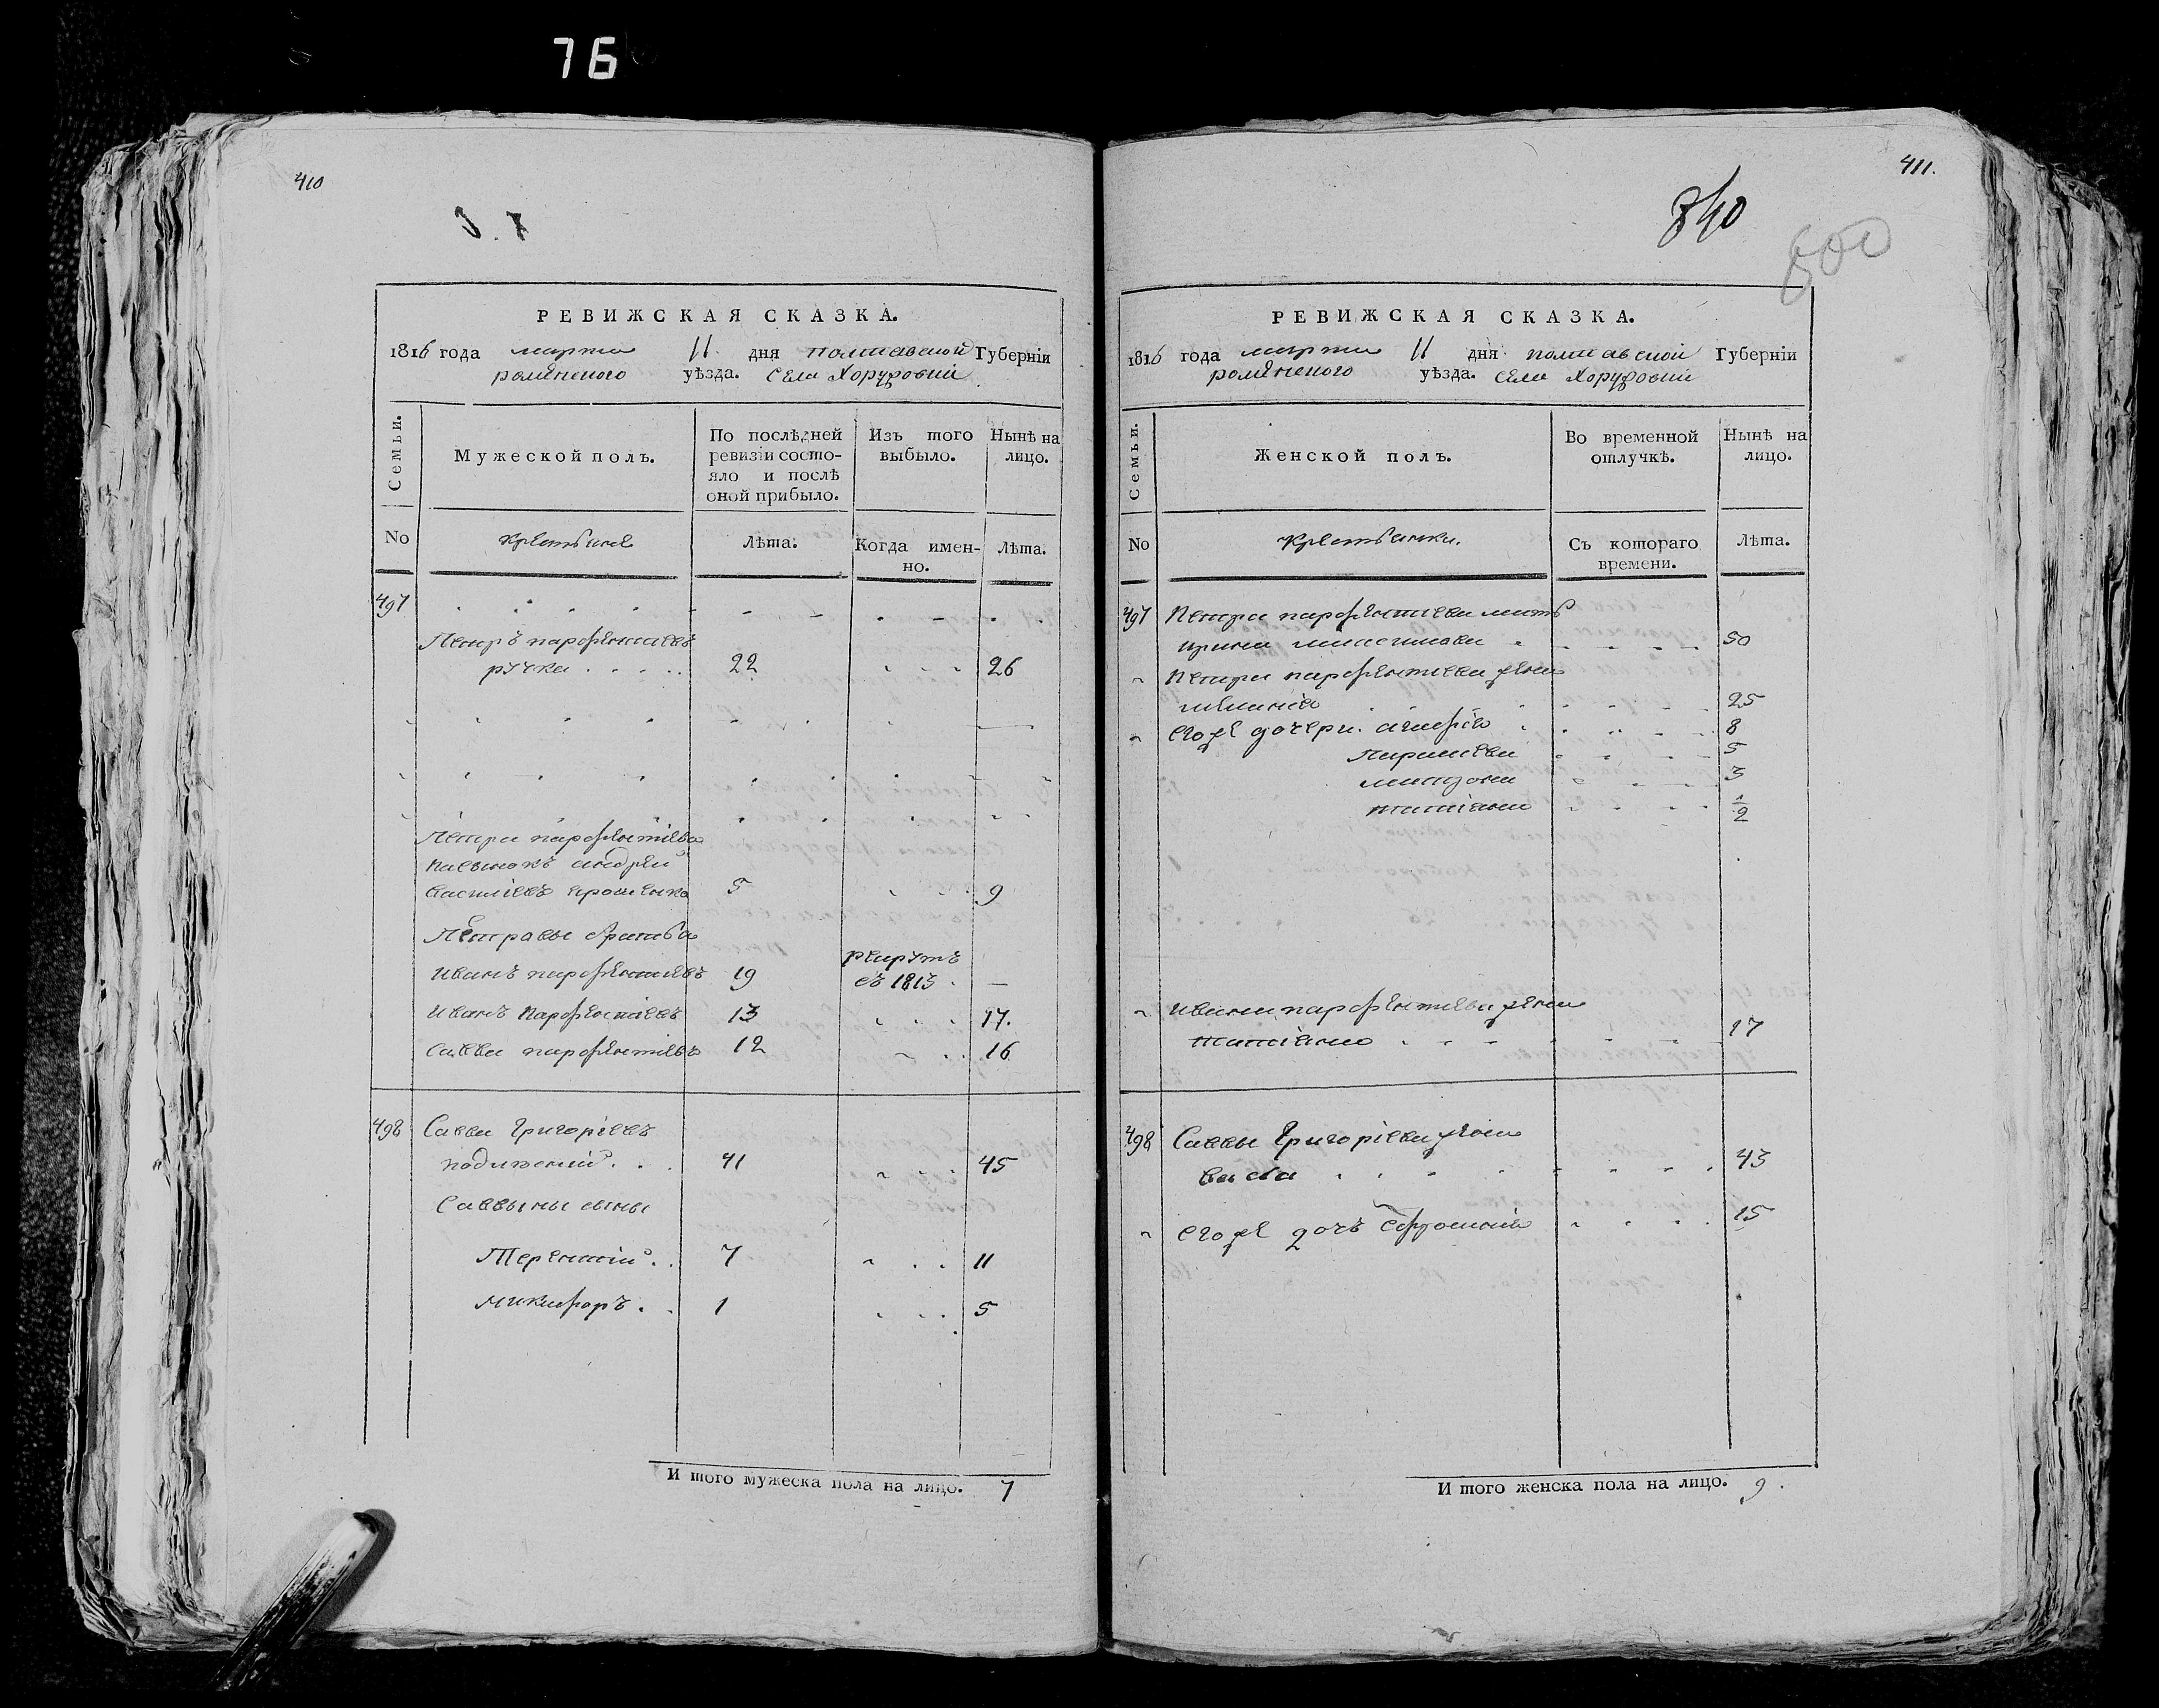 76
410
РЕВИЖСКАЯ СКАЗКА.
1816 года марта 11 дня полтавской Губернїи
роменского уѣзда. села Хоружовки
Семьи.
Мужеской полъ.
По послѣдней
ревизїи состо-
яло и послѣ
оной прибыло.
Изъ того
выбыло.
Нынѣ на
лицо.
No
крестьяне
лѣта.
Когда имен-
но.
лѣта.
497
Петръ парфентиевъ
ручка 22 26
Петра парфентиева
пасынокъ андрей
василиевъ ярошенко 5 9
Петровы братья
иванъ парфентиевъ 19 рекрутъ въ 1813 —
иванъ парфентиевъ 13 17.
савва парфентиевъ 12 16
498 Савва григорїевъ
41 45
Саввины сыны
Терентий 7 11
микифоръ 1 5
И того мужеска пола на лицо. 7
411.
840
800
РЕВИЖСКАЯ СКАЗКА.
1816 года марта 11 дня полтавской Губернїи
роменского уѣзда. села Хоружовки
Семьи.
Женской полъ.
Во временной
отлучкѣ.
Нынѣ на
лицо.
No
крестьянки.
Съ котораго
времени.
лѣта.
497 Петра парфентиева мать
ирина 50
Петра парфентиева жена
мелания 25
егоже дочери. агафия 8
параскева 5
3
татияна 1/2
ивана парфентиева жена
татияна 17
498 Саввы григорїева жена
васса 43
егоже дочь ефросиния 15
И того женска пола на лицо. 9.